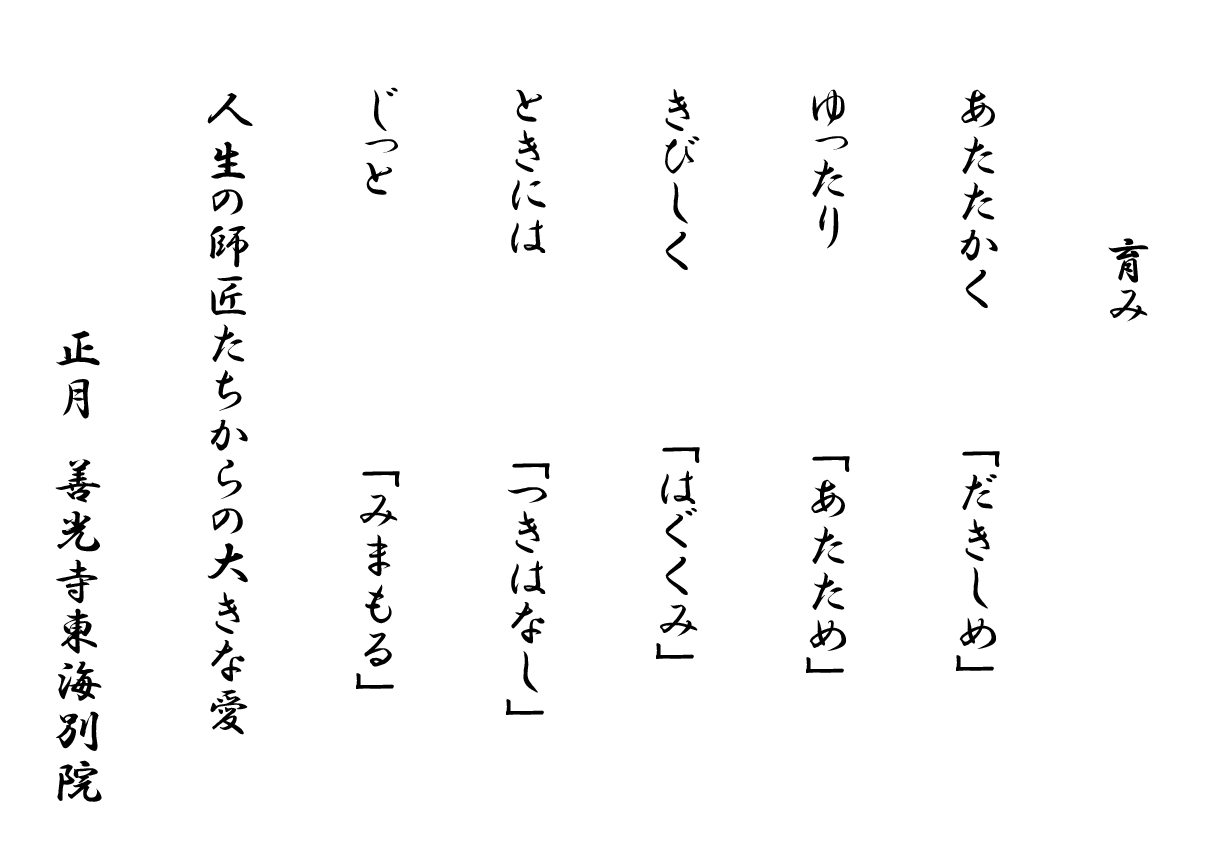 育み
あたたかく　「だきしめ」
ゆったり　「あたため」
きびしく　「はぐくみ」
ときには　「つきはなし」
じっと　「みまもる」
人生の師匠たちからの大きな愛
正月　善光寺東海別院